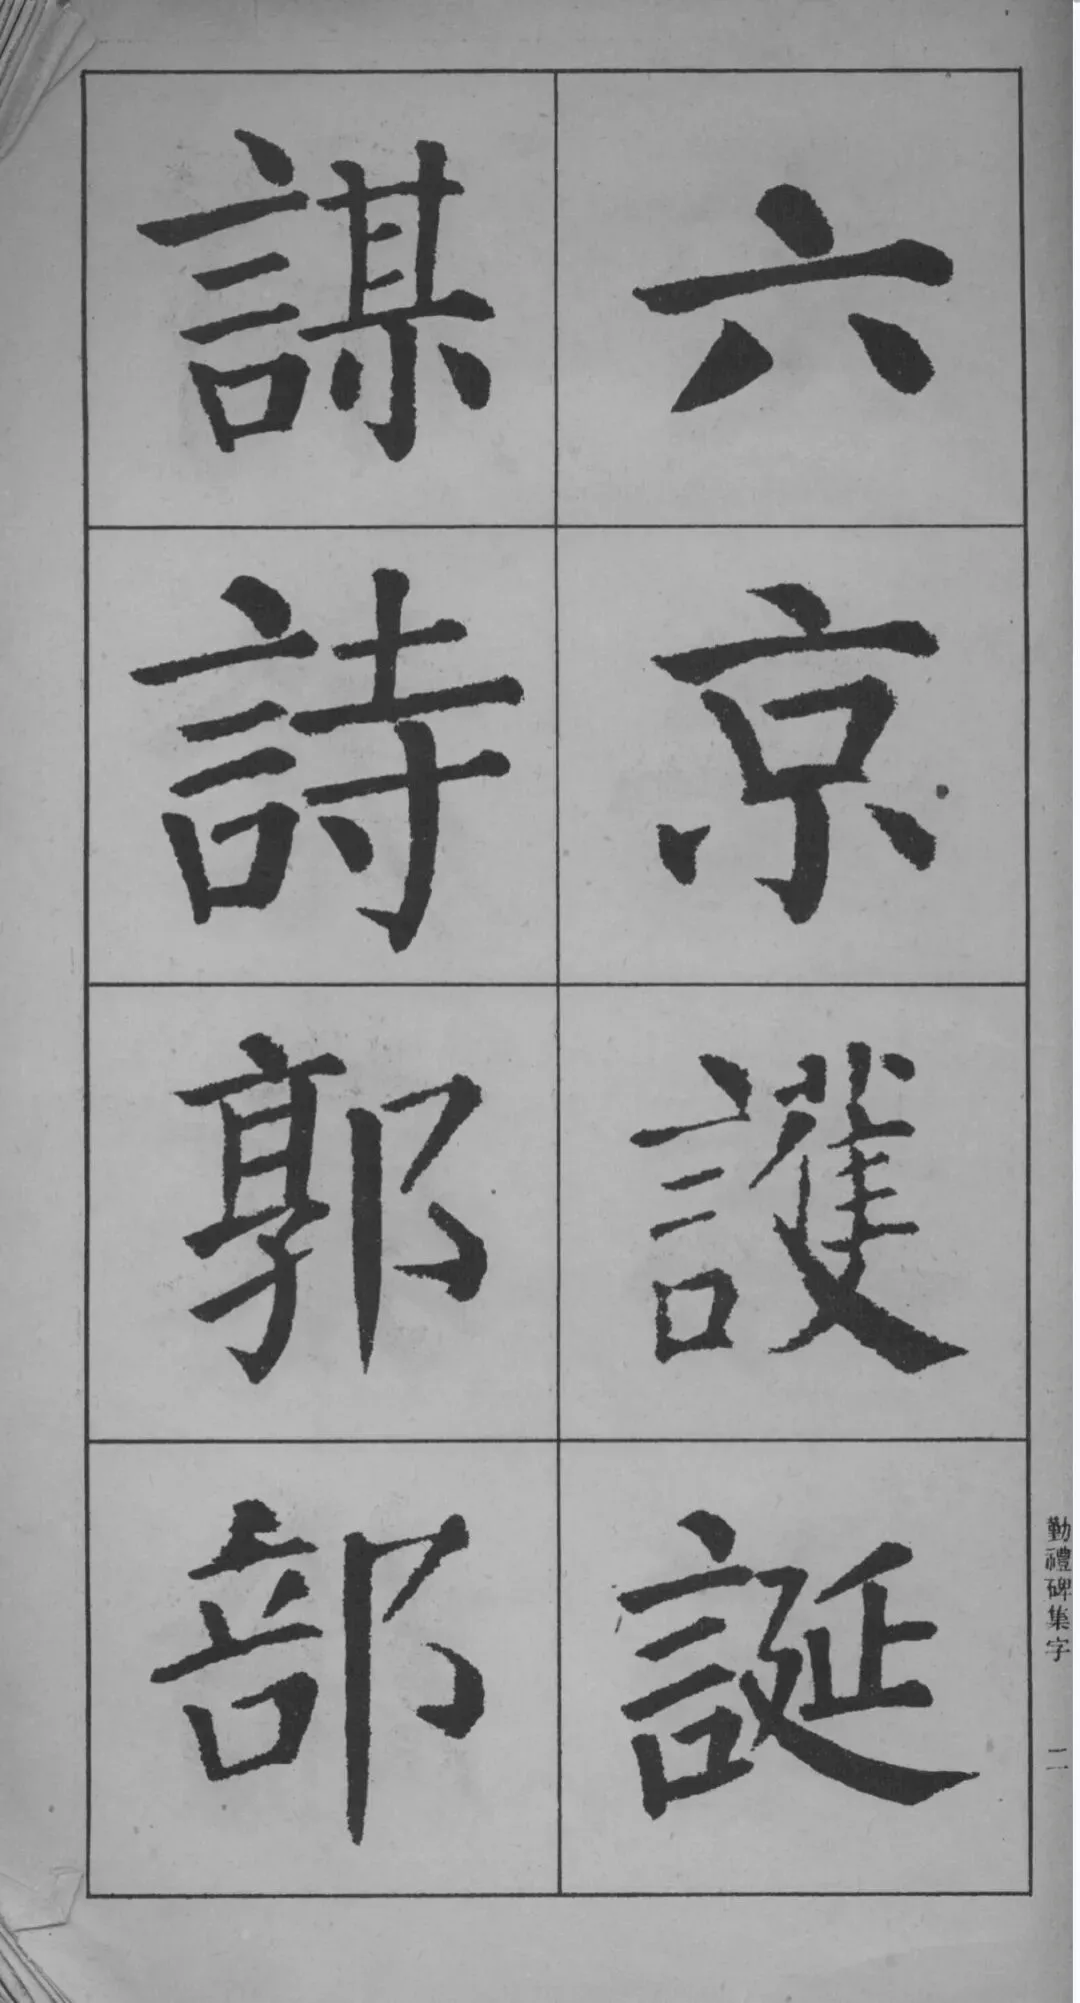 六京護誕
謀詩郭部
勤禮碑集字 二